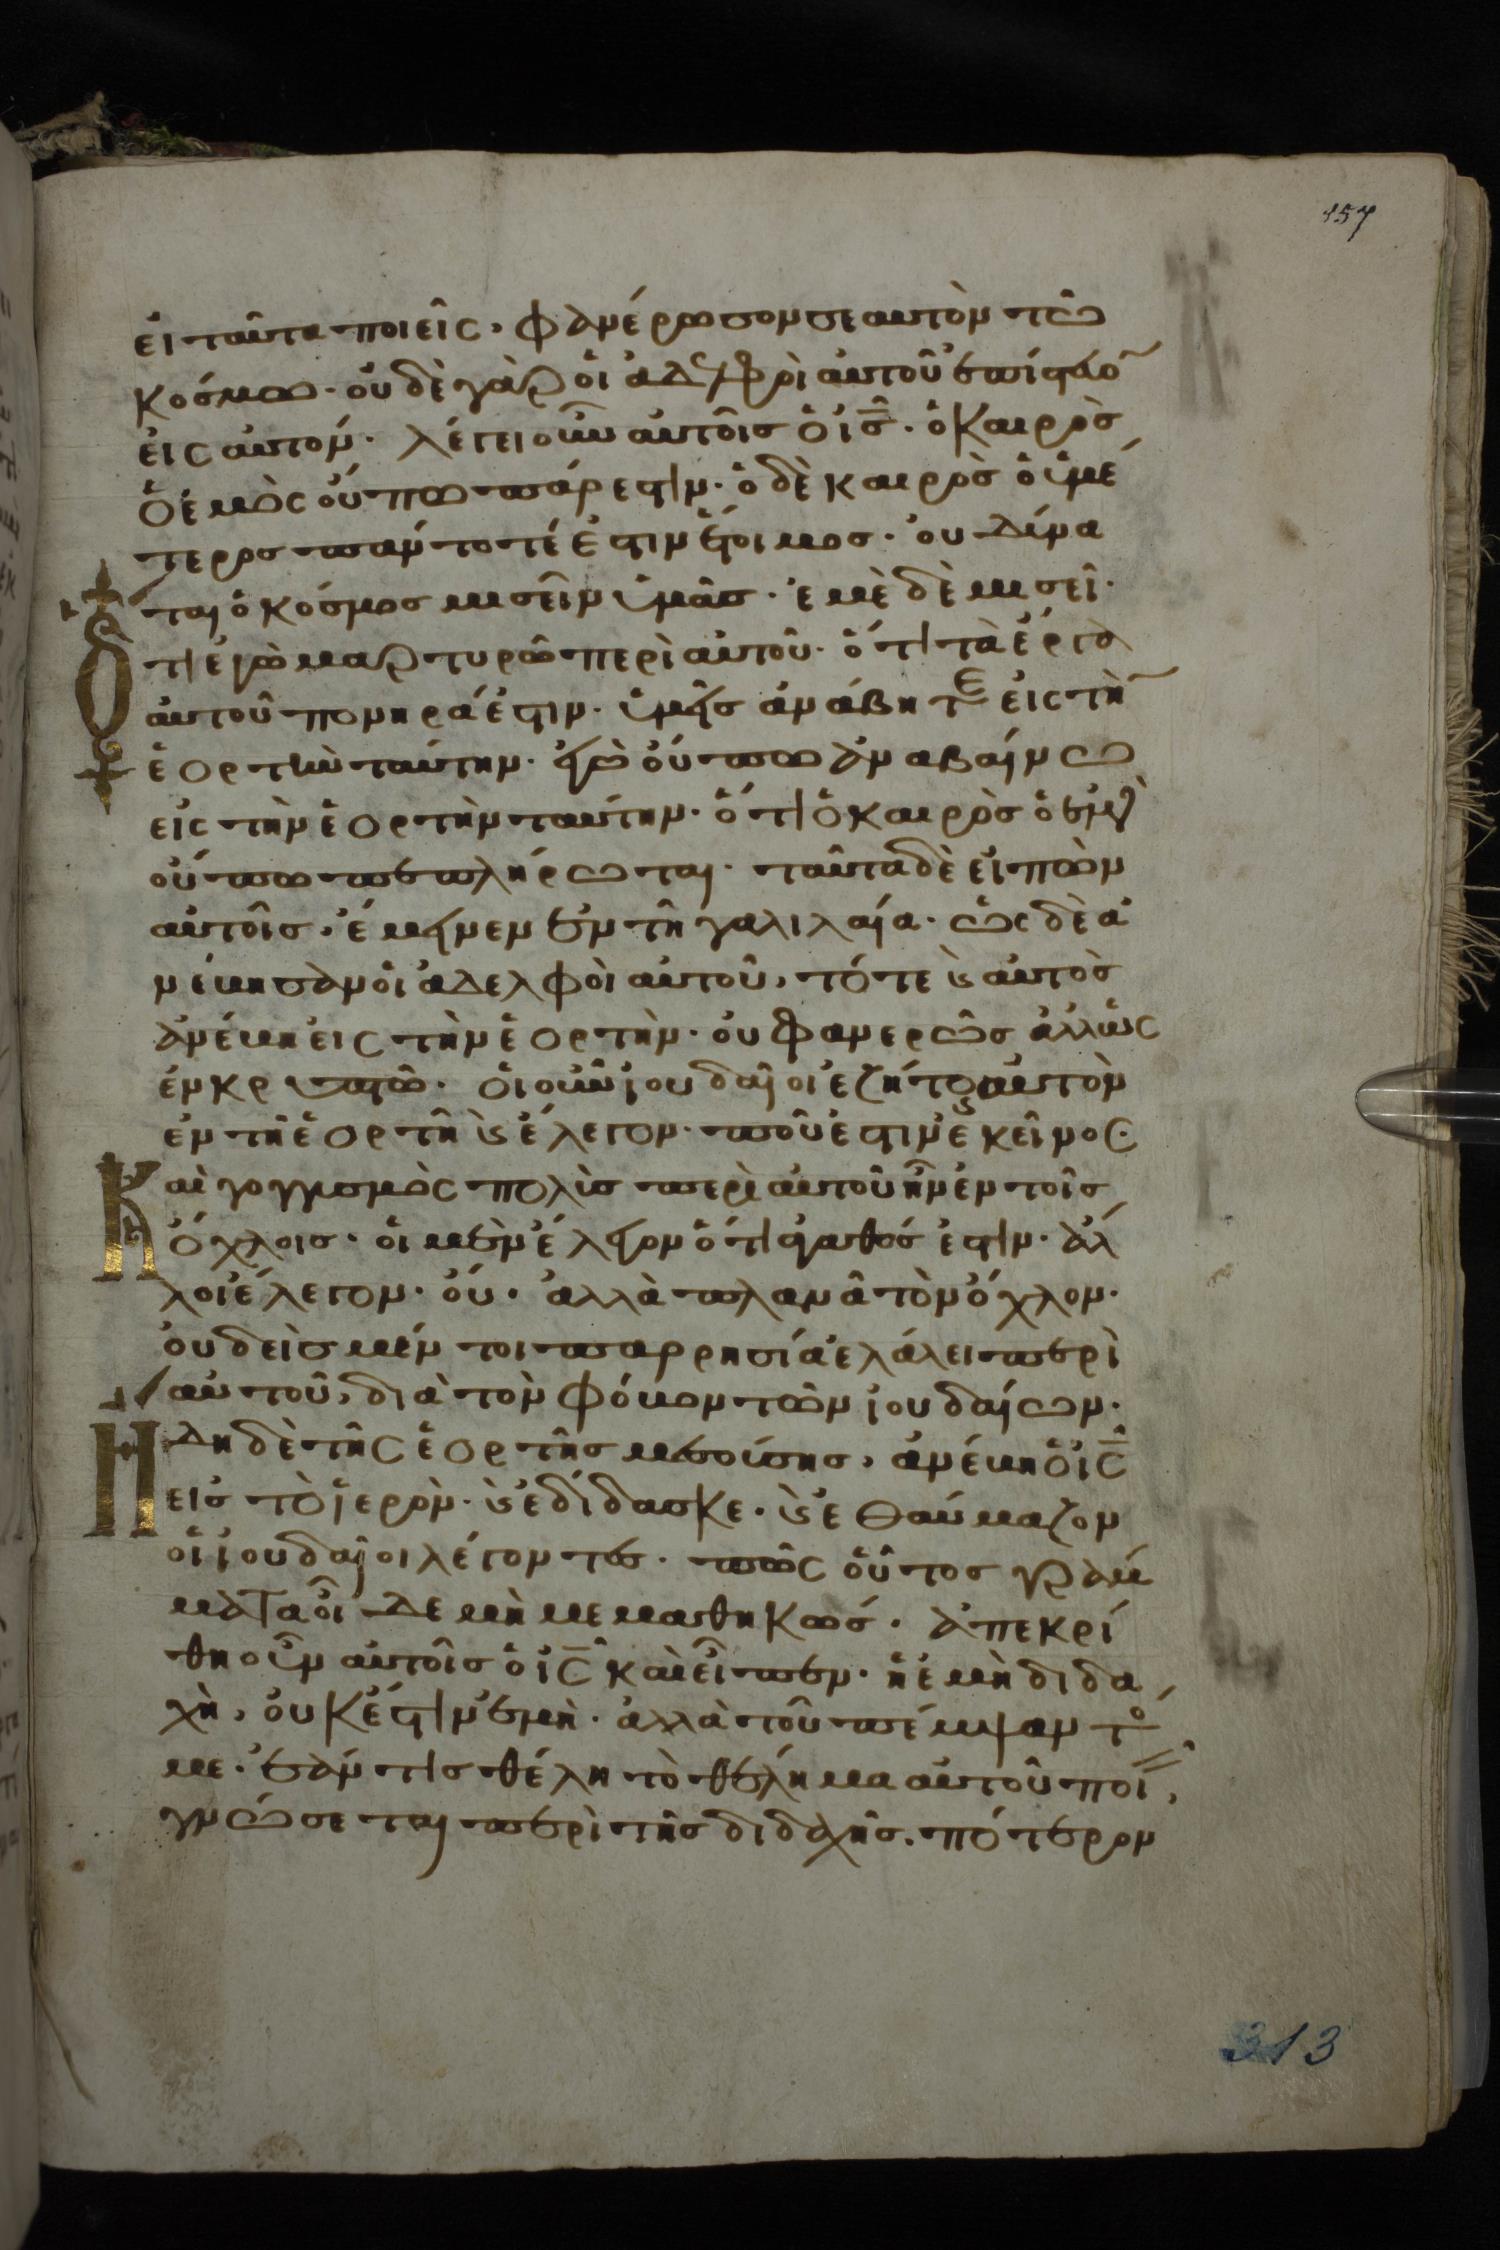 157
εἰ ταῦτα ποιεῖς, φανέρωσον σεαυτὸν τῶ
κόσμω· οὐδὲ γὰρ οἱ ἀδελφοὶ αὐτοῦ ἐπίστευο̅
εἰς αὐτόν· λέγει οὖν αὐτοῖς ὁ ι̅ς̅· ὁ καιρὸς
ὁ ἐμὸς οὔπω πάρεστιν· ὁ δὲ καιρὸς ὁ ὑμέ
τερος πάντοτέ ἐστιν ἕτοιμος· οὐ δύνα
ται ὁ κόσμος μισεῖν ὑμᾶς· ἐμὲ δὲ μισεῖ· Ὅ
τι ἐγὼ μαρτυρῶ περὶ αὐτοῦ· ὅτι τὰ ἔργα
αὐτοῦ πονηρά ἐστιν· ὑμεῖς ἀνάβητε εἰς τὴ̅
ἑορτὴν ταύτην· ἐγὼ οὔπω ἀναβαίνω
εἰς τὴν ἑορτὴν ταύτην· ὅτι ὁ καιρὸς ὁ ἐμὸ
οὔπω πεπλήρωται· ταῦτα δὲ εἰπὼν
αὐτοῖς, ἔμεινεν ἐν τῆ γαλιλαία· ὡς δὲ ἀ
νέβησαν οἱ ἀδελφοὶ αὐτοῦ, τότε ϗ αὐτὸς
ἀνέβη εἰς τὴν ἑορτὴν· οὐ φανερῶς ἀλλ' ὡς
ἐν κρυπτῶ· οἱ οὖν ἰουδαῖοι ἐζήτουν αὐτὸν
ἐν τῆ ἑορτῆ ϗ ἔλεγον· ποῦ ἐστιν ἐκεῖνος·
Καὶ γογγυσμὸς πολὺς περὶ αὐτοῦ ἦν ἐν τοῖς
ὄχλοις· οἱ μὲν ἔλεγον ὅτι ἀγαθός ἐστιν· ἄλ
λοι ἔλεγον· οὔ· ἀλλὰ πλανᾶ τὸν ὄχλον·
οὐδεὶς μέν τοι παρρησία ἐλάλει περὶ
αὐτοῦ, διὰ τὸν φόβον τῶν ἰουδαίων·
Ἤδη δὲ τῆς ἑορτῆς μεσούσης, ἀνέβη ὁ ι̅ς̅
εἰς τὸ ἱερὸν· ϗ ἐδίδασκε· ϗ ἐθαύμαζον
οἱ ἰουδαῖοι λέγοντες· πῶς οὗτος γράμ
ματα οἶδε μὴ μεμαθηκώς· ἀπεκρί
θη οὖν αὐτοῖς ὁ ι̅ς̅ καὶ εἶπεν· ἡ ἐμὴ διδα
χὴ, οὐκ ἔστιν ἐμὴ· ἀλλὰ τοῦ πέμψαντό
με· ἐάν τις θέλη τὸ θέλημα αὐτοῦ ποι,
γνώσεται περὶ τῆς διδαχῆς. πότερον
313